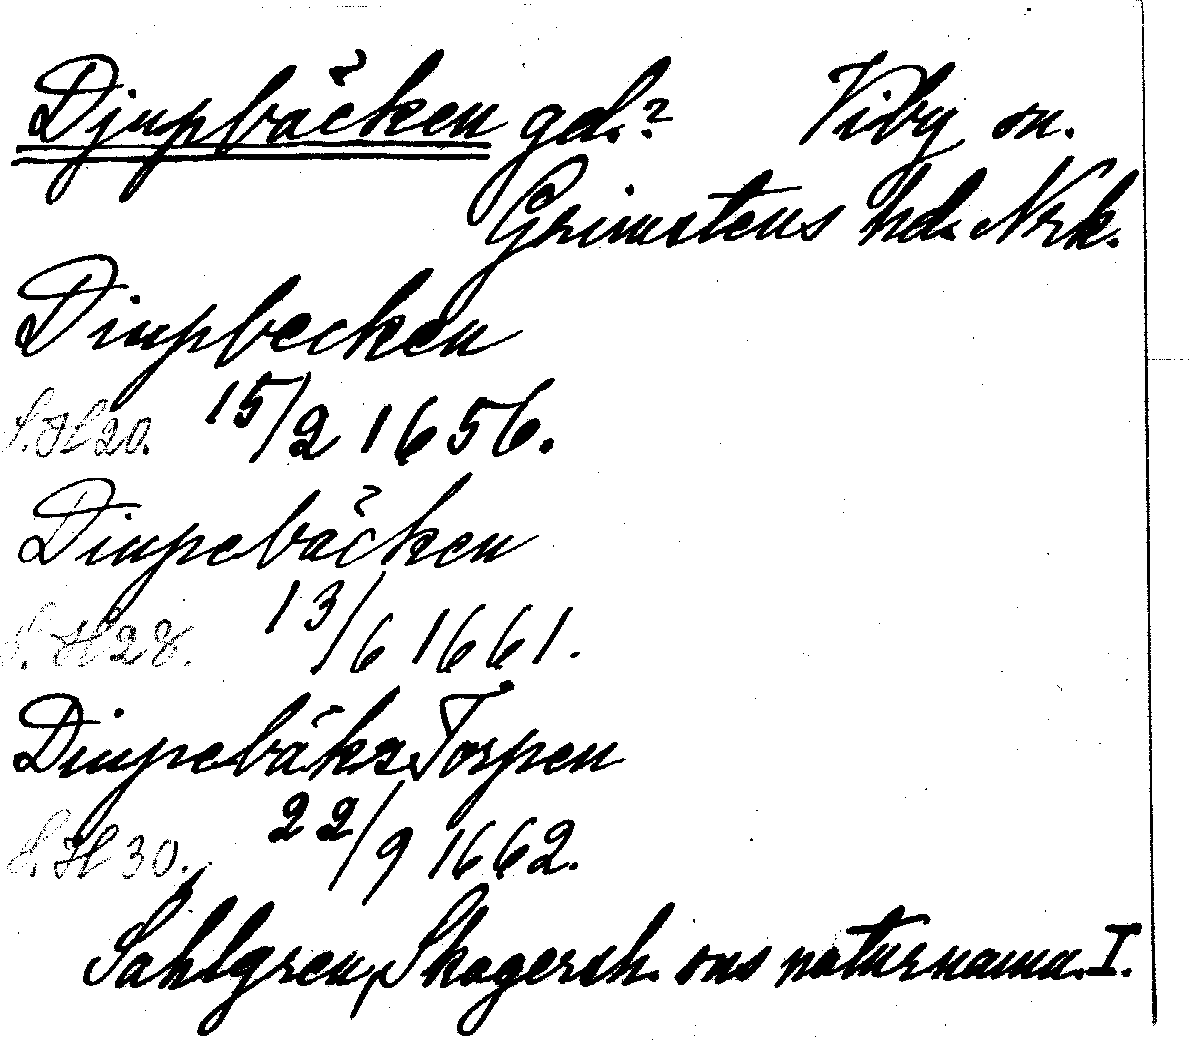 Djupbäcken gd.? Viby sn.
Grimstens hd. Nrk.
Diupbecken
S.H 20. 15/2 1656.
Diupebäcken
S.H 28. 13/6 1661.
Diupebäks Torpen
S.H 30. 22/9 1662.
Sahlgren, Skagersh. sns naturnamn. I.